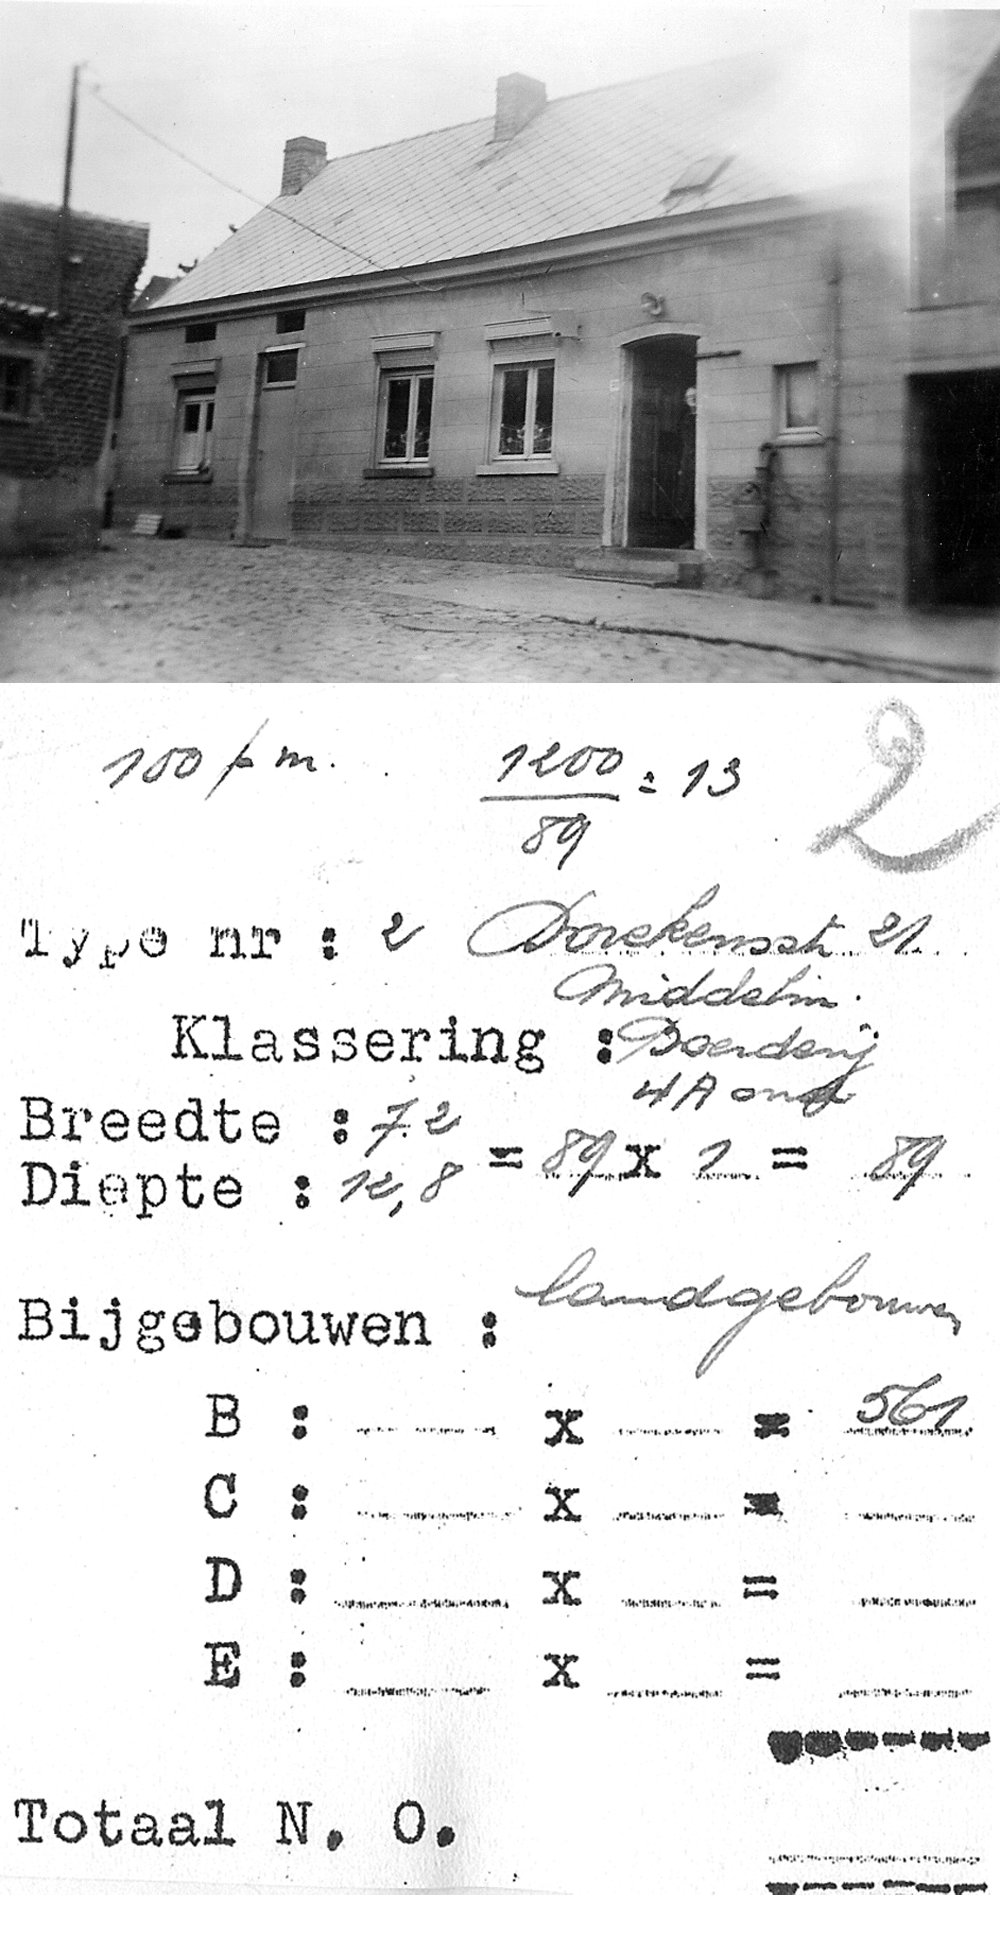 100 p m.
1200
= 13
89
2
Type nr : 2 21
Middelm.
Klassering : Boerderij
4 A
Breedte : 7.2
= 89 x 1 = 89
Diepte : 12,8
Bijgebouwen : landgebouwen
B : x = 561
C : x =
D : x =
E : x =
Totaal N. O.